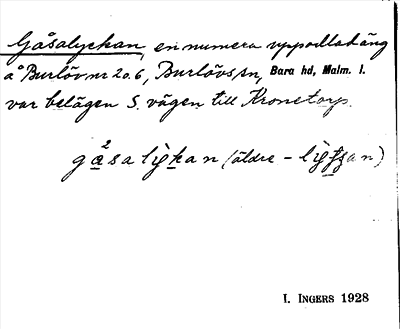 Gåsalyckan, en numera uppodlad äng
å Burlöv nr 2 o. 6, Burlövs sn, Bara hd, Malm. l.
var belägen S. vägen till Kronetorp.
(äldre –
I. INGERS 1928